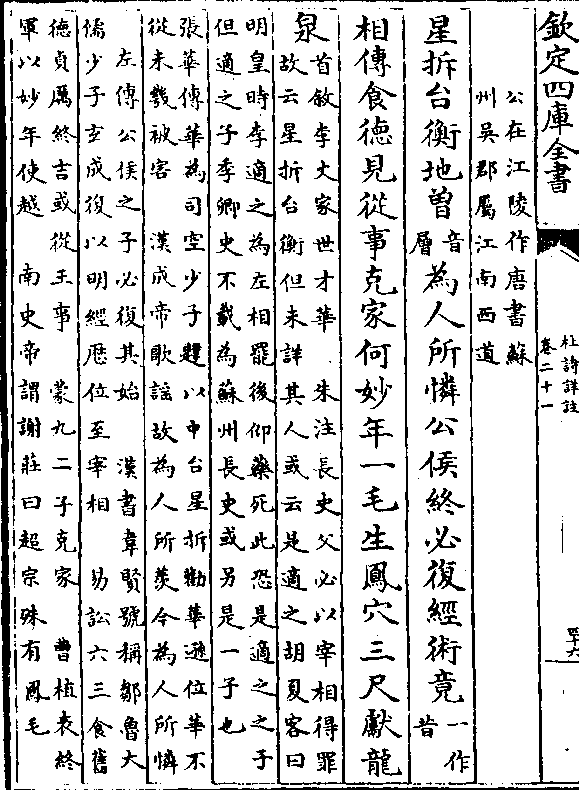 欽定四庫全書
杜詩詳註
卷二十一
四十六
公在江陵作唐書蘇
州吳郡屬江南西道
星拆台衡地曽音層為人所憐公侯終必復經術竟一作昔
相傳食德見從事克家何妙年一毛生鳳穴三尺獻龍
泉首敘李丈家世才華 朱注長史父必以宰相得罪
故云星折台衡但未詳其人或云是適之胡夏客曰
明皇時李適之為左相罷後仰藥死此恐是適之之子
但適之子季卿史不載為蘇州長史或另是一子也
張華傳華為司空少子韙以中台星折勸華遜位華不
從未幾被害 漢成帝歌謡故為人所羨今為人所憐
左傳公侯之子必復其始 漢書韋賢號稱鄒魯大
儒少子玄成復以明經歴位至宰相 易訟六三食舊
德貞厲終吉或從王事 蒙九二子克家 曹植表終
軍以妙年使越 南史帝謂謝莊曰超宗殊有鳳毛